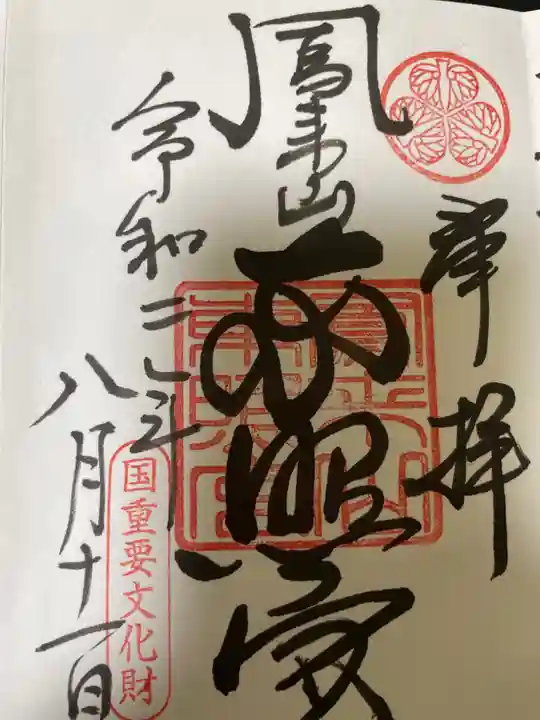 奉拝
鳳来山
東照宮
令和二年
八月十一日
国重要文化財